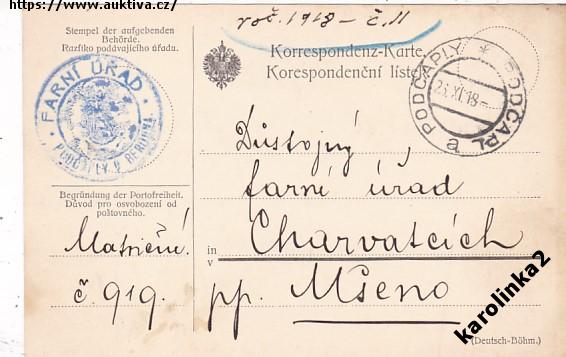 https://www.auktiva.cz/
roč. 1918 – č. 11
Stempel der aufgebenden
Behörde.
Razítko podávajícího úřadu.
FARNÍ ÚŘAD
Korrespondenz-Karte.
Korespondenční lístek.
PODČAPLY
23.XI.18
a
Begründung der Portofreiheit.
Důvod pro osvobození od
poštovného.
Matriční.
č. 919.
Důstojný
farní úřad
in
v
Charvatcích
pp. Mšeno
(Deutsch-Böhm.)
karolinka2